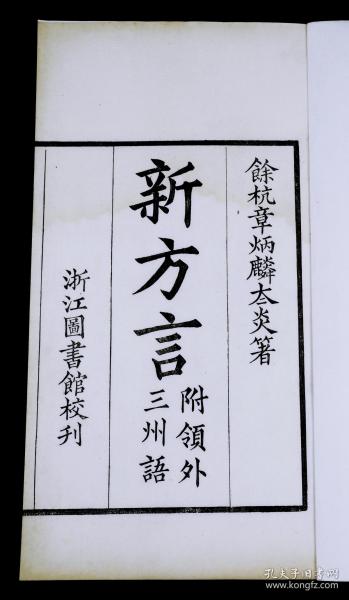 餘杭章炳麟太炎箸
新方言
附領外
三州語
浙江圖書館校刊
孔夫子旧书网
www.kongfz.com